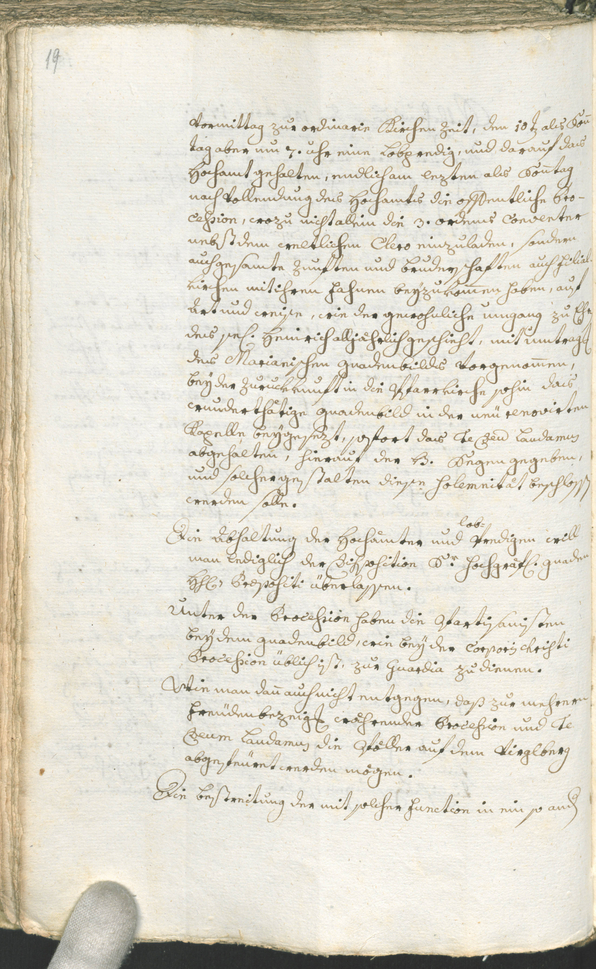 19
Vormittag zur ordinarie Kirchen Zeit, den 10t als Son̄
tag aber um 7. uhr eine Lobpredig, und darauf das
Hochamt gehalten, endlich am lezten als Sontag
nach Vollendung des Hochamts die offentliche Pro-
cession, wozu nicht allein die 3. ordens Convente
nebst dem weltlichen Clero einzuladen, sondern
auch gesamte Zunften und Bruderschaften auch
kirchen mit ihren fahnen beyzukom̄en haben, auf
art und weise, wie der gewohnliche umgang zu Ehr
des sel. Heinrich alljährlich geschieht, mit umtrag
des Marianischen gnadenbilds vorgenom̄en,
bey der zuruckkunft in die Pfarrkirche sohin das
wunderthätige gnadenbild in der neü renovirten
Kapelle beygesezt, sofort das Te Deum Laudamus
abgehalten, hierauf der H. Segen gegeben,
und solcher gestalten diese Solemnität beschlossen
werden solle.
Die Abhaltung der Hochämter und Lob: Predigen will
man lediglich der Disposition Sr. Hochgräfl. gnaden
Hl. Probsten überlassen.
Unter der Procession haben die Partisanisten
bey dem gnadenbild, wie bey der Corporis Christi
Procession üblich ist, zur Guardia zu dienen.
Wie man dan̄ auch nicht entgegen, daß zur mehreren
freüdenbezeigung während der Procession und Te
Deum Laudamus die Pöller auf dem Virglberg
abgefeüret werden mögen.
Die bestreitung der mit solcher Function in ein so and